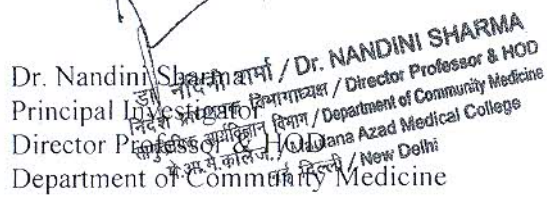 Dr. Nandini Sharma
Principal Investigator
Director Professor & HOD
Department of Community Medicine
डॉ. नंदिनी शर्मा / Dr. NANDINI SHARMA
निदेशक प्राध्यापक विभागाध्यक्ष / Director Professor & HOD
सामुदायिक आयुर्विज्ञान विभाग / Department of Community Medicine
मौ.आ.मे.कॉलेज / Maulana Azad Medical College
नई दिल्ली / New Delhi